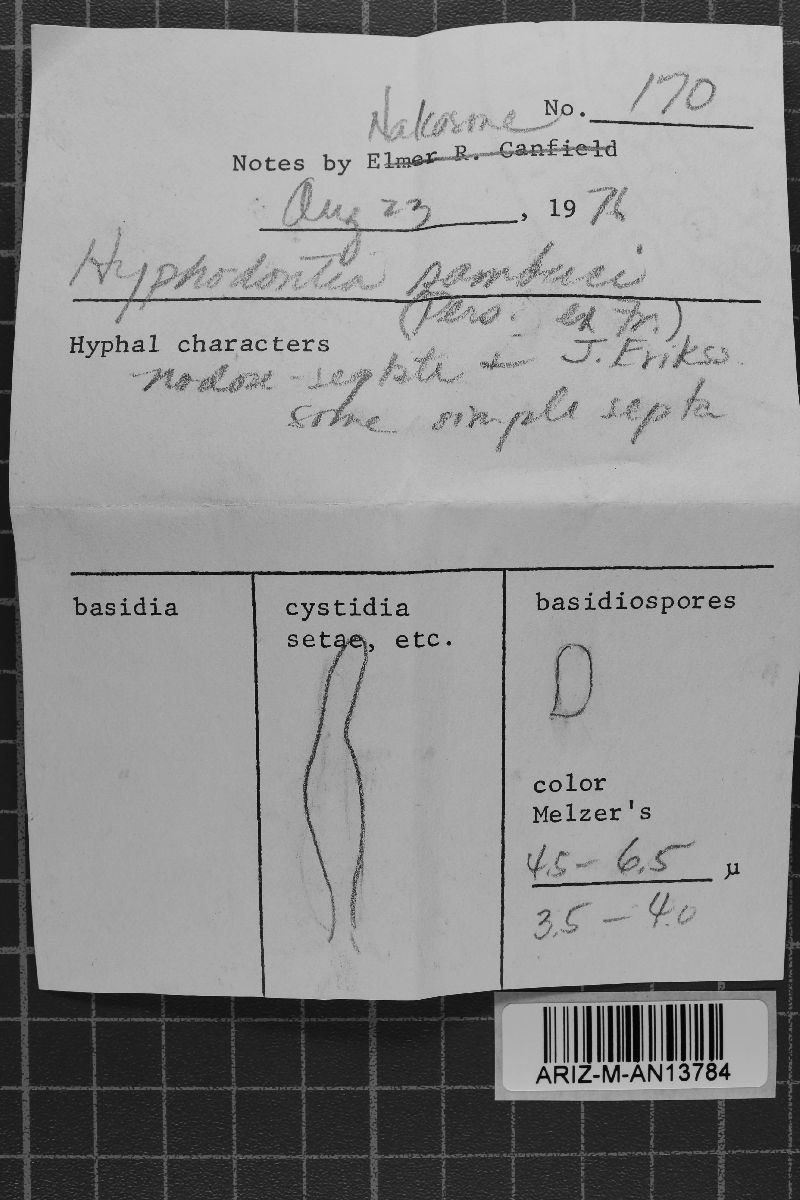 Nakasone No. 170
Notes by Elmer R. Canfield
Aug 23, 1976
Hyphodontia sambuci
(Pers. ex Fr.)
Hyphal characters J. Erikss.
nodose-septate +
some simple septa
basidia
cystidia
setae, etc.
basidiospores
color
Melzer's
4.5 – 6.5 µ
3.5 – 4.0
ARIZ-M-AN13784